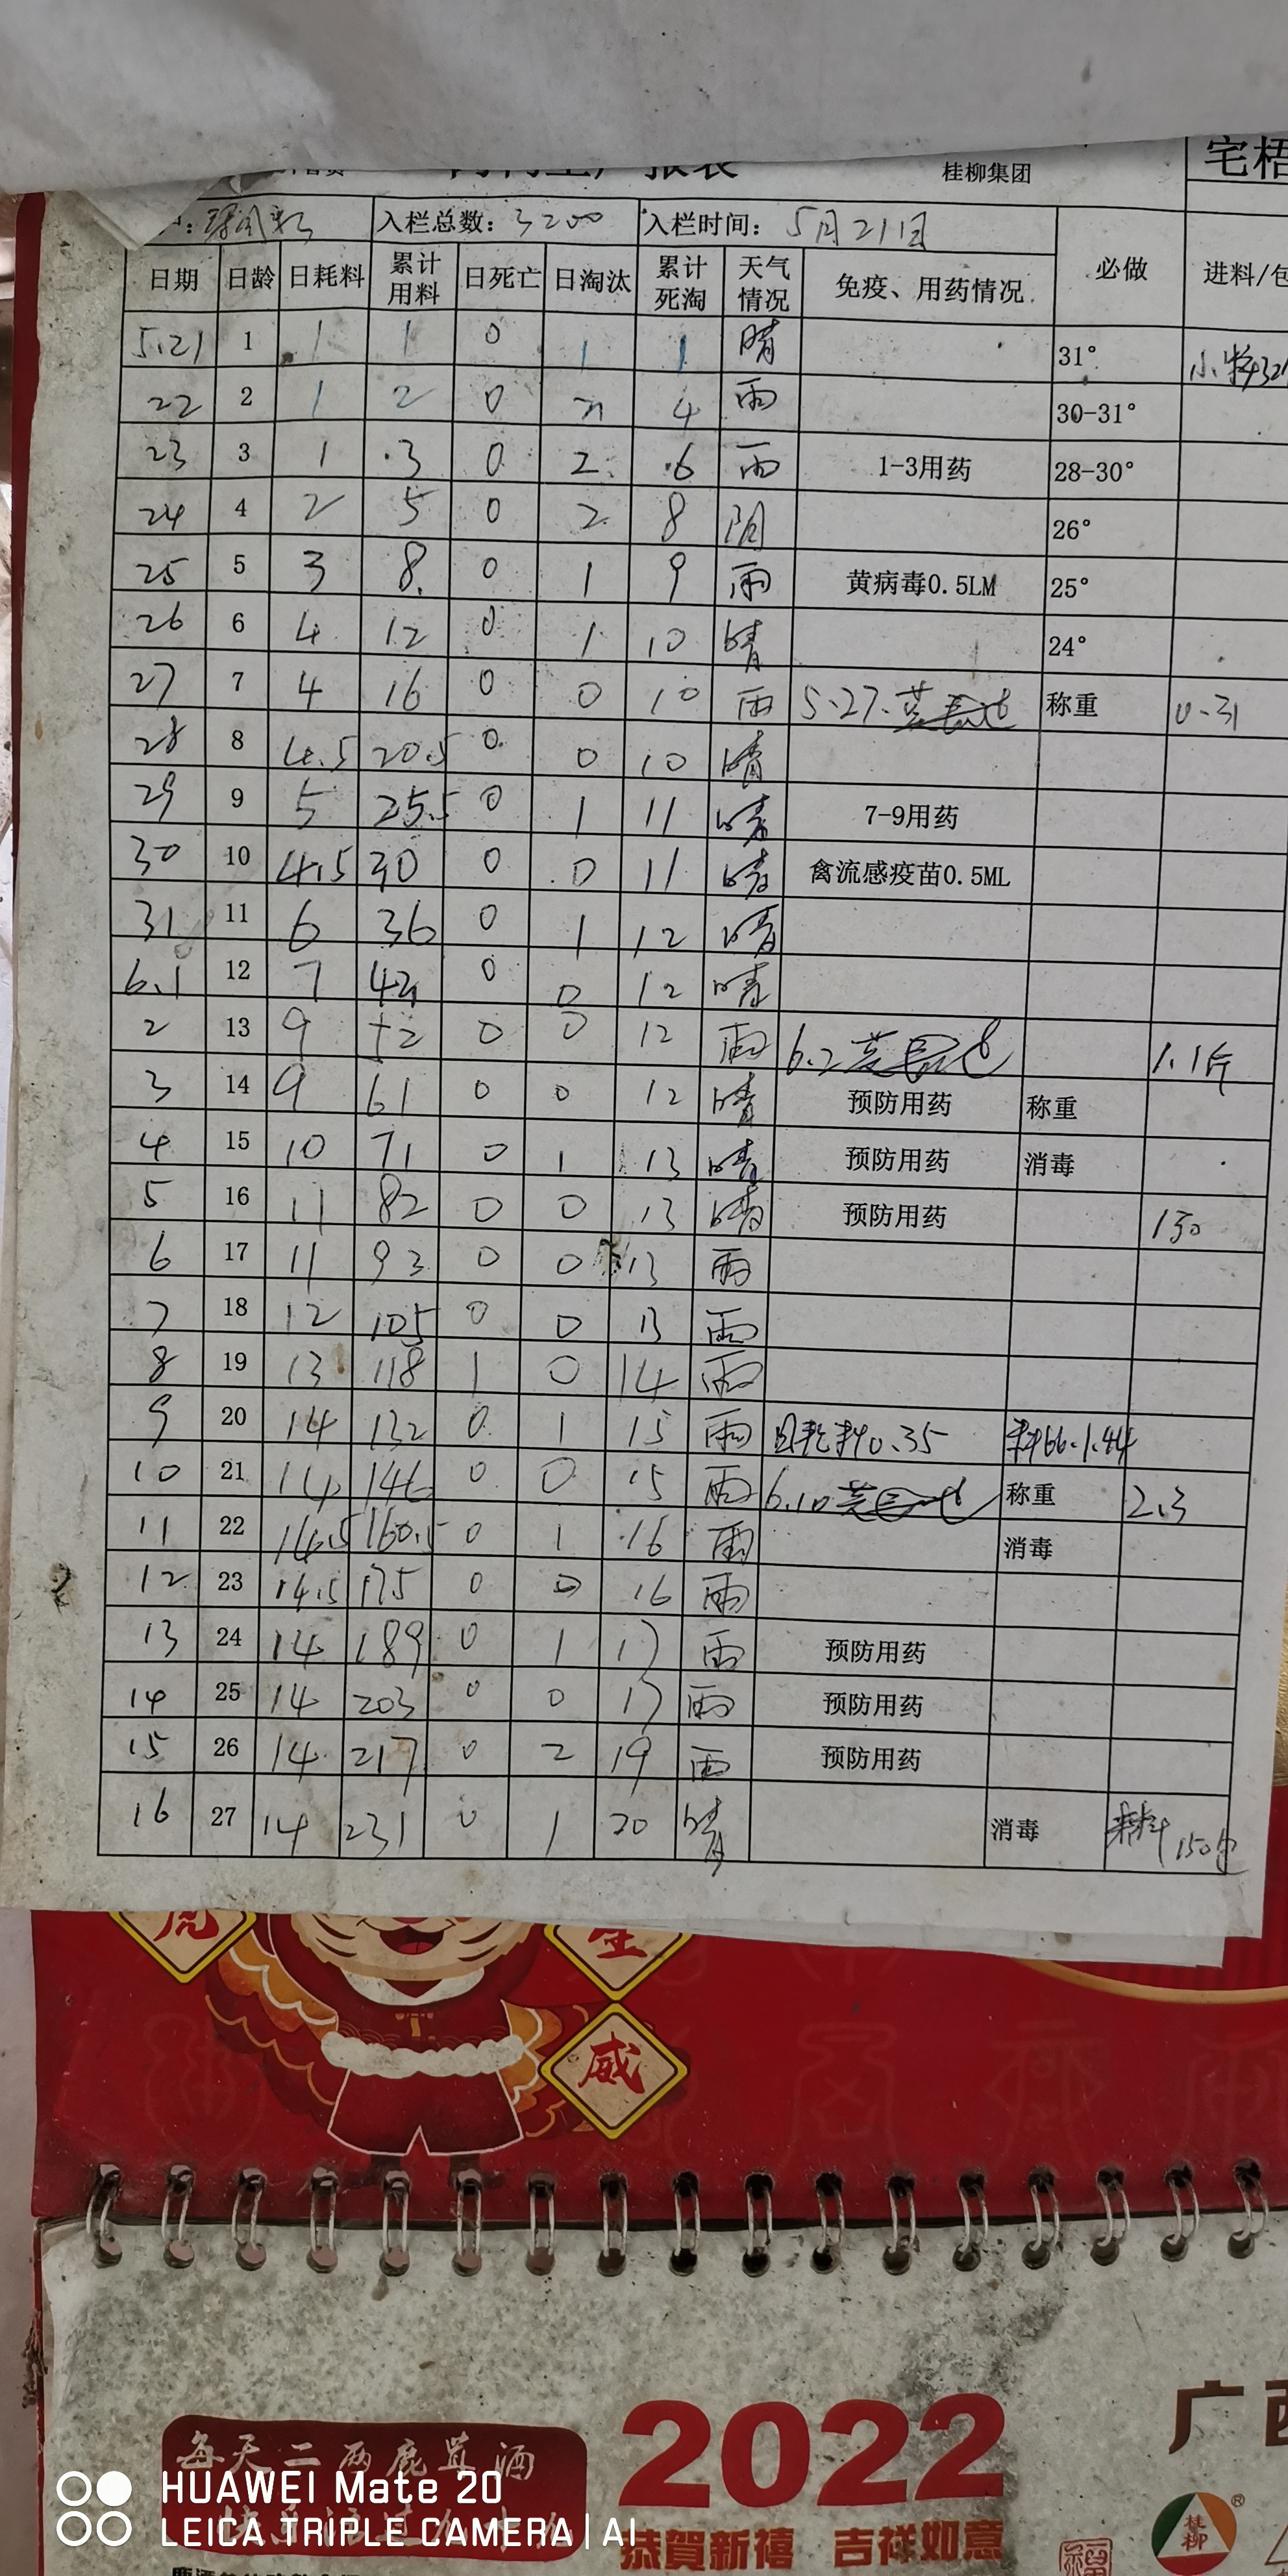 报表 桂柳集团
入栏总数: 3200 入栏时间: 5月21日
日期 日龄 日耗料 累计用料 日死亡 日淘汰 累计死淘 天气情况 免疫、用药情况 必做 进料/包
5.21 1 1 1 0 1 1 晴 31°
22 2 1 2 0 3 4 雨 30-31°
23 3 1 3 0 2 6 雨 1-3用药 28-30°
24 4 2 5 0 2 8 阴 26°
25 5 3 8 0 1 9 雨 黄病毒0.5LM 25°
26 6 4 12 0 1 10 晴 24°
27 7 4 16 0 0 10 雨 5.27. 称重 0.31
28 8 4.5 20.5 0 0 10 晴
29 9 5 25.5 0 1 11 晴 7-9用药
30 10 4.5 30 0 0 11 晴 禽流感疫苗0.5ML
31 11 6 36 0 1 12 晴
6.1 12 7 43 0 0 12 晴
2 13 9 52 0 0 12 雨 6.2 1.1斤
3 14 9 61 0 0 12 晴 预防用药 称重
4 15 10 71 0 1 13 晴 预防用药 消毒
5 16 11 82 0 0 13 晴 预防用药 150
6 17 11 93 0 0 13 雨
7 18 12 105 0 0 13 雨
8 19 13 118 1 0 14 雨
9 20 14 132 0 1 15 雨 日耗料0.35 料66.1.44
10 21 14 146 0 0 15 雨 6.10 称重 2.3
11 22 14.5 160.5 0 1 16 雨 消毒
12 23 14.5 175 0 0 16 雨
13 24 14 189 0 1 17 雨 预防用药
14 25 14 203 0 0 17 雨 预防用药
15 26 14 217 0 2 19 雨 预防用药
16 27 14 231 0 1 20 晴 消毒 来料150包
虎
威
每天二两鹿茸酒
2022
恭賀新禧 吉祥如意
桂柳
®
HUAWEI Mate 20
LEICA TRIPLE CAMERA | AI